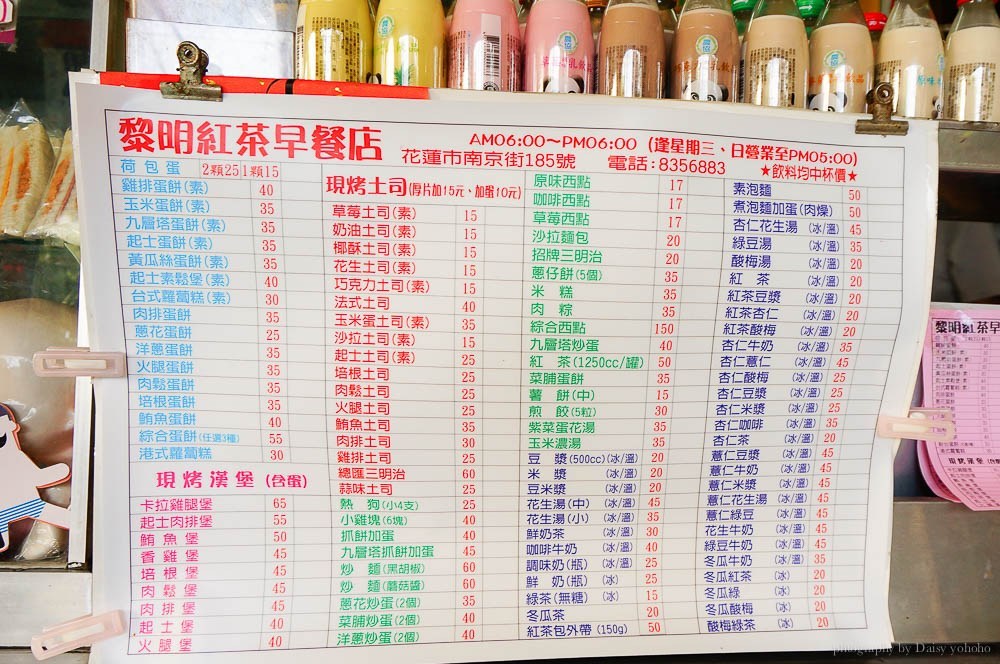 黎明紅茶早餐店
AM06:00~PM06:00 (逢星期三、日營業至PM05:00)
花蓮市南京街185號 電話:8356883 ★飲料均中杯價★
荷包蛋 2顆25 1顆15
雞排蛋餅(素) 40
玉米蛋餅(素) 35
九層塔蛋餅(素) 35
起士蛋餅(素) 35
黃瓜絲蛋餅(素) 35
起士素鬆堡(素) 40
台式蘿蔔糕(素) 30
肉排蛋餅 35
蔥花蛋餅 25
洋蔥蛋餅 35
火腿蛋餅 35
肉鬆蛋餅 35
培根蛋餅 35
鮪魚蛋餅 40
綜合蛋餅(任選3種) 55
港式蘿蔔糕 30
現烤漢堡 (含蛋)
卡拉雞腿堡 65
起士肉排堡 55
鮪魚堡 50
香雞堡 45
培根堡 45
肉鬆堡 45
肉排堡 45
起士堡 40
火腿堡 40
現烤土司(厚片加15元、加蛋10元)
草莓土司(素) 15
奶油土司(素) 15
椰酥土司(素) 15
花生土司(素) 15
巧克力土司(素) 15
法式土司 40
玉米蛋土司(素) 35
沙拉土司(素) 25
起士土司(素) 25
培根土司 25
肉鬆土司 25
火腿土司 25
鮪魚土司 35
肉排土司 30
雞排土司 25
總匯三明治 60
蒜味土司 25
熱狗(小4支) 25
小雞塊(6塊) 40
抓餅加蛋 40
九層塔抓餅加蛋 45
炒麵(黑胡椒) 60
炒麵(蘑菇醬) 60
蔥花炒蛋(2個) 35
菜脯炒蛋(2個) 40
洋蔥炒蛋(2個) 40
原味西點 17
咖啡西點 17
草莓西點 17
沙拉麵包 20
招牌三明治 20
蔥仔餅(5個) 35
米糕 35
肉粽 35
綜合西點 150
九層塔炒蛋 40
紅茶(1250cc/罐) 50
菜脯蛋餅 35
薯餅(中) 15
煎餃(5粒) 30
紫菜蛋花湯 35
玉米濃湯 35
豆漿(500cc)(冰/溫) 20
米漿 (冰/溫) 20
豆米漿 (冰/溫) 20
花生湯(中) (冰/溫) 45
花生湯(小) (冰/溫) 35
鮮奶茶 (冰/溫) 30
咖啡牛奶 (冰/溫) 40
調味奶(瓶) (冰/溫) 25
鮮奶(瓶) (冰) 25
綠茶(無糖) (冰) 15
冬瓜茶 20
紅茶包外帶 (150g) 50
素泡麵 50
煮泡麵加蛋(肉燥) 50
杏仁花生湯 (冰/溫) 45
綠豆湯 (冰/溫) 35
酸梅湯 (冰/溫) 20
紅茶 (冰/溫) 20
紅茶豆漿 (冰/溫) 20
紅茶杏仁 (冰/溫) 20
紅茶酸梅 (冰/溫) 20
杏仁牛奶 (冰/溫) 35
杏仁薏仁 (冰/溫) 45
杏仁酸梅 (冰/溫) 25
杏仁豆漿 (冰/溫) 25
杏仁米漿 (冰/溫) 25
杏仁咖啡 (冰/溫) 35
杏仁茶 (冰/溫) 20
薏仁豆漿 (冰/溫) 45
薏仁牛奶 (冰/溫) 45
薏仁米漿 (冰/溫) 45
薏仁花生湯 (冰/溫) 45
薏仁綠豆 (冰/溫) 45
花生牛奶 (冰/溫) 45
綠豆牛奶 (冰/溫) 45
冬瓜牛奶 (冰/溫) 35
冬瓜紅茶 (冰) 20
冬瓜綠 (冰) 20
冬瓜酸梅 (冰) 20
酸梅綠茶 (冰) 20
黎明紅茶早
現烤漢堡
photography by Daisy yohoho